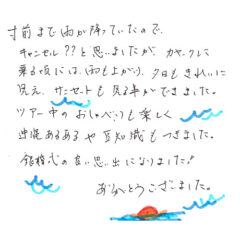 寸前まで雨が降っていたので、
キャンセル??と思いましたが、カヤックに
乗る頃には、雨も上がり、夕日もきれいに
見え、サンセットも見る事ができました。
ツアー中のおしゃべりも楽しく
沖縄あるあるや豆知識もつきました。
銀婚式の良い思い出になりました!
ありがとうございました。